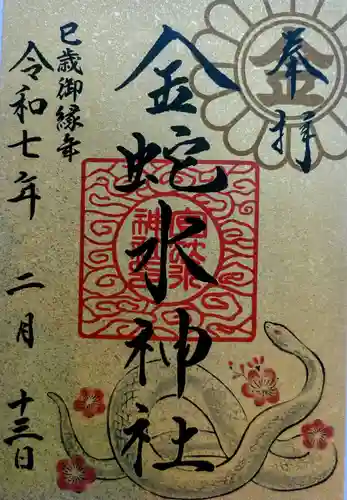 奉拝
金蛇水神社
巳歳御縁年
令和七年 二月 十三日